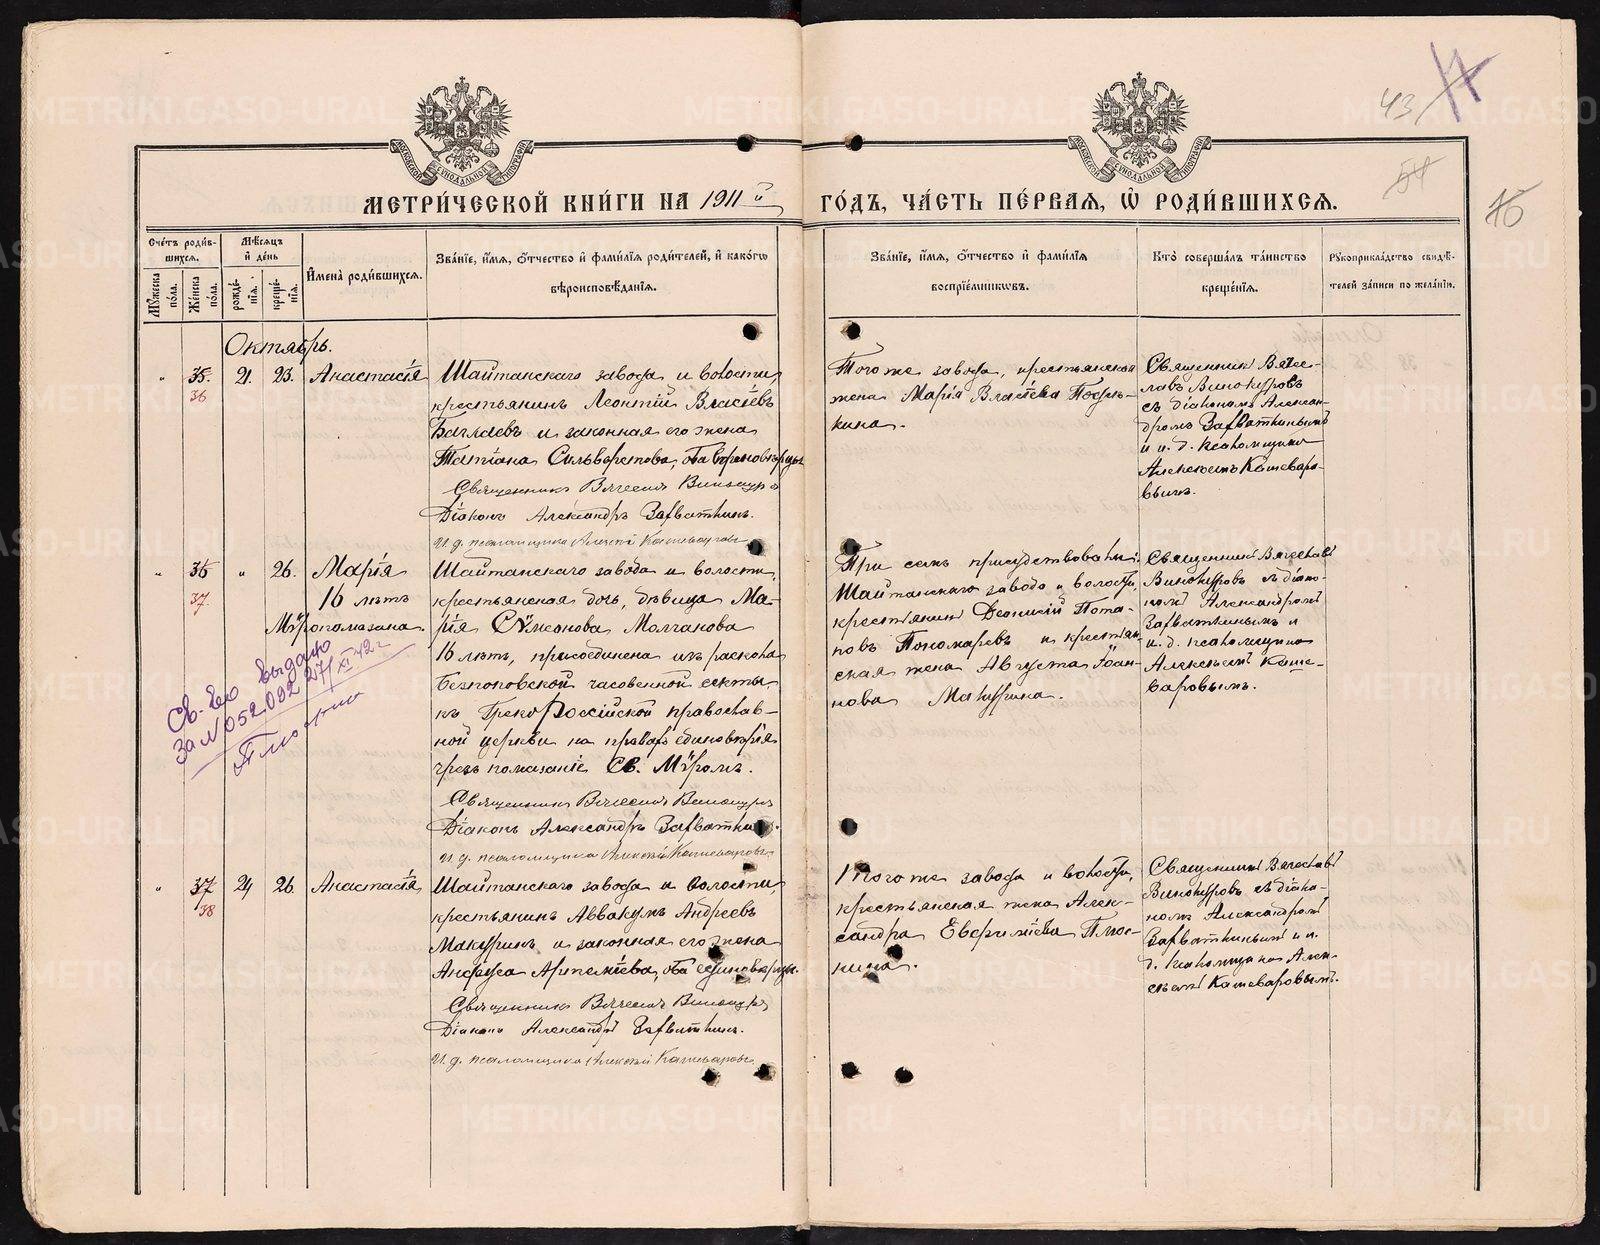 43
17
54
16
МЕТРИ́ЧЕСКОЙ КНИ́ГИ НА 1911й
ГО́ДЪ, ЧА́СТЬ ПЕ́РВАЯ, Ѡ РОДИ́ВШИХСЯ.
Сче́тъ роди́в-
шихся.
Мꙋ́жеска по́ла.
Же́нска по́ла.
Мѣ́сяцъ
и҆ де́нь
рожде́-
нїя.
креще́-
нїя.
И҆мена̀ роди́вшихся.
Зва́нїе, и҆́мя, ѻ҆́тчество и҆ фами́лїя роди́телей, и҆ како́гѡ
вѣроисповѣ́данїя.
Зва́нїе, и҆́мя, ѻ҆́тчество и҆ фами́лїя
воспрїе́мникѡвъ.
Кто̀ соверша́лъ та́инство
креще́нїя.
Рꙋкоприкла́дство свидѣ́-
телей за́писи по жела́нїю.
Октябрь.
" 35. 21. 23. Анастасія
36
Шайтанскаго завода и волости,
крестьянинъ Леонтій Власіевъ
Баглаевъ и законная его жена
Татіана Сильверстова, оба единовѣрцы
Священникъ Вячеславъ Винокуровъ
Діаконъ Александръ Завьяткинъ.
И. д. псаломщика Алексій Кашеваровъ
Того же завода, крестьянская
жена Марія Власіева Подъ-
кина.
Священникъ Вяче-
славъ Винокуровъ
съ діакономъ Алексан-
дромъ
и и. д. псаломщика
Алексѣемъ Кашеваро-
вымъ.
" 36 " 26. Марія
37.
16 лѣтъ
Мѵропомазана.
Шайтанскаго завода и волости,
крестьянская дочь, дѣвица Ма-
рія Сѵмеонова Молганова
16 лѣтъ, присоединена изъ раскола
безпоповской часовенной секты,
къ Греко Россійской православ-
ной церкви на правахъ единовѣрія
чрезъ помазаніе Св. Мѵромъ.
Священникъ Вячеславъ Винокуровъ
Діаконъ Александръ
И. д. псаломщика Алексій Кашеваровъ
При семъ присудствовали:
Шайтанскаго завода и волости,
крестьянинъ Діонисій Пота-
повъ Пономаревъ и крестьян-
ская жена Августа Іоан-
нова Макурина.
Священникъ Вячеславъ
Винокуровъ съ діако-
номъ Александромъ
и
и. д. псаломщика
Алексѣемъ Каше-
варовымъ.
Св-во выдано
За № 052092 27/XI 42 г
" 37 24 26 Анастасія
38
Шайтанскаго завода и волости,
крестьянинъ Аввакумъ Андреевъ
Макуринъ и законная его жена
Анфуса Артеміева, оба единовѣрцы.
Священникъ Вячеславъ Винокуровъ
Діаконъ Александръ
И. д. псаломщика Алексій Кашеваровъ
Того же завода и волости,
крестьянская жена Алек-
сандра Евфиміева Плюс-
нина.
Священникъ Вячеславъ
Винокуровъ съ діако-
номъ Александромъ
и и.
д. псаломщика Алек-
сѣемъ Кашеваровымъ.
METRIKI.GASO-URAL.RU